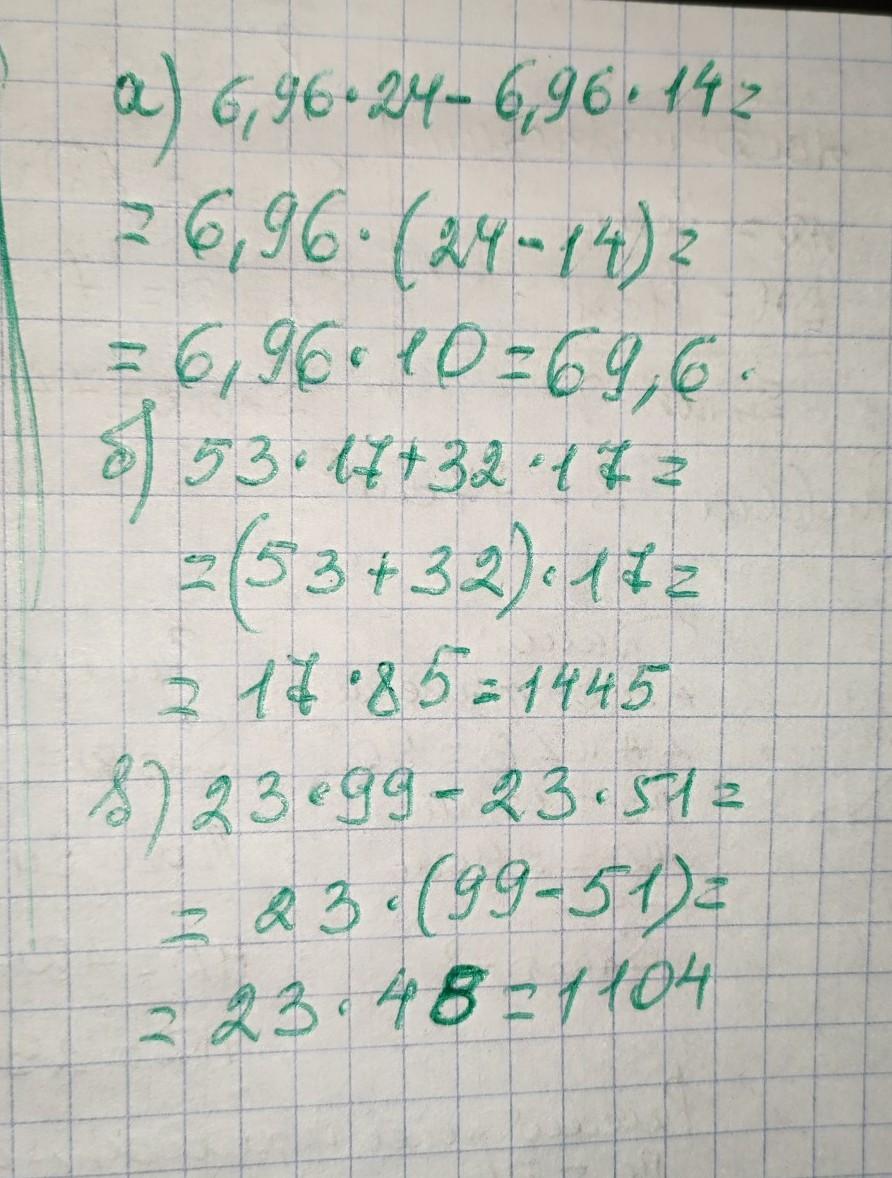 а) 6,96·24-6,96·14=
=6,96·(24-14)=
=6,96·10=69,6.
б) 53·17+32·17=
=(53+32)·17=
=17·85=1445
в) 23·99-23·51=
=23·(99-51)=
=23·48=1104